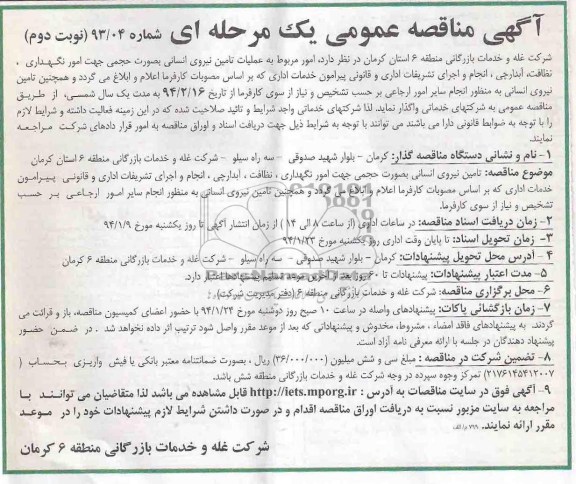 آگهی مناقصه عمومی یک مرحله ای شماره ۹۳/۰۴ (نوبت دوم)
شرکت غله و خدمات بازرگانی منطقه ۶ استان کرمان در نظر دارد، امور مربوط به عملیات تامین نیروی انسانی بصورت حجمی جهت امور نگهداری ،
نظافت، آبدارچی ، انجام و اجرای تشریفات اداری و قانونی پیرامون خدمات اداری که بر اساس مصوبات کارفرما اعلام و ابلاغ می گردد و همچنین تامین
نیروی انسانی به منظور انجام سایر امور ارجاعی بر حسب تشخیص و نیاز از سوی کارفرما از تاریخ ۹۴/۲/۱۶ به مدت یک سال شمسی، از طریق
مناقصه عمومی به شرکتهای خدماتی واگذار نماید. لذا شرکتهای خدماتی واجد شرایط و تائید صلاحیت شده که در این زمینه فعالیت داشته و شرایط لازم
را با توجه به ضوابط قانونی دارا می باشند می توانند با توجه به شرایط ذیل جهت دریافت اسناد و اوراق مناقصه به امور قرار دادهای شرکت مراجعه
نمایند.
۱- نام و نشانی دستگاه مناقصه گذار: کرمان – بلوار شهید صدوقی – سه راه سیلو – شرکت غله و خدمات بازرگانی منطقه ۶ استان کرمان
موضوع مناقصه: تامین نیروی انسانی بصورت حجمی جهت امور نگهداری ، نظافت ، آبدارچی ، انجام و اجرای تشریفات اداری و قانونی پیرامون
خدمات اداری که بر اساس مصوبات کارفرما اعلام و ابلاغ می گردد و همچنین تامین نیروی انسانی به منظور انجام سایر امور ارجاعی بر حسب
تشخیص و نیاز از سوی کارفرما.
۲- زمان دریافت اسناد مناقصه: در ساعات اداری (از ساعت ۸ الی ۱۴ ) از زمان انتشار آگهی تا روز یکشنبه مورخ ۹۴/۱/۹
۳- زمان تحویل اسناد: تا پایان وقت اداری روز یکشنبه مورخ ۹۴/۱/۲۳
۴ – آدرس محل تحویل پیشنهادات: کرمان – بلوار شهید صدوقی – سه راه سیلو – شرکت غله و خدمات بازرگانی منطقه ۶ کرمان
۵- مدت اعتبار پیشنهادات: پیشنهادات تا ۶۰ روز بعد از آخرین موعد تسلیم پیشنهادها اعتبار دارد.
۶- محل برگزاری مناقصه: شرکت غله و خدمات بازرگانی منطقه ۶ (دفتر مدیریت شرکت).
۷- زمان بازگشائی پاکات: پیشنهادهای واصله در ساعت ۱۰ صبح روز دوشنبه مورخ ۹۴/۱/۲۴ با حضور اعضای کمیسیون مناقصه، باز و قرائت می
گردند. به پیشنهادهای فاقد امضاء ، مشروط، مخدوش و پیشنهاداتی که بعد از موعد مقرر واصل شود ترتیب اثر داده نخواهد شد . در ضمن حضور
پیشنهاد دهندگان در جلسه با ارائه معرفی نامه آزاد است.
۸- تضمین شرکت در مناقصه : مبلغ سی و شش میلیون (۳۶/۰۰۰/۰۰۰) ریال ، بصورت ضمانتنامه معتبر بانکی یا فیش واریزی بحساب (
۲۱۷۶۱۴۵۴۱۲۰۰۷) تمرکز وجوه سپرده در وجه شرکت غله و خدمات بازرگانی منطقه شش باشد.
۹- آگهی فوق در سایت مناقصات به آدرس : http://iets.mporg.ir قابل مشاهده می باشد لذا متقاضیان می توانند با
مراجعه به سایت مزبور نسبت به دریافت اوراق مناقصه اقدام و در صورت داشتن شرایط لازم پیشنهادات خود را در موعد
مقرر ارائه نمایند. ۷۹۹ م/الف
شرکت غله و خدمات بازرگانی منطقه ۶ کرمان